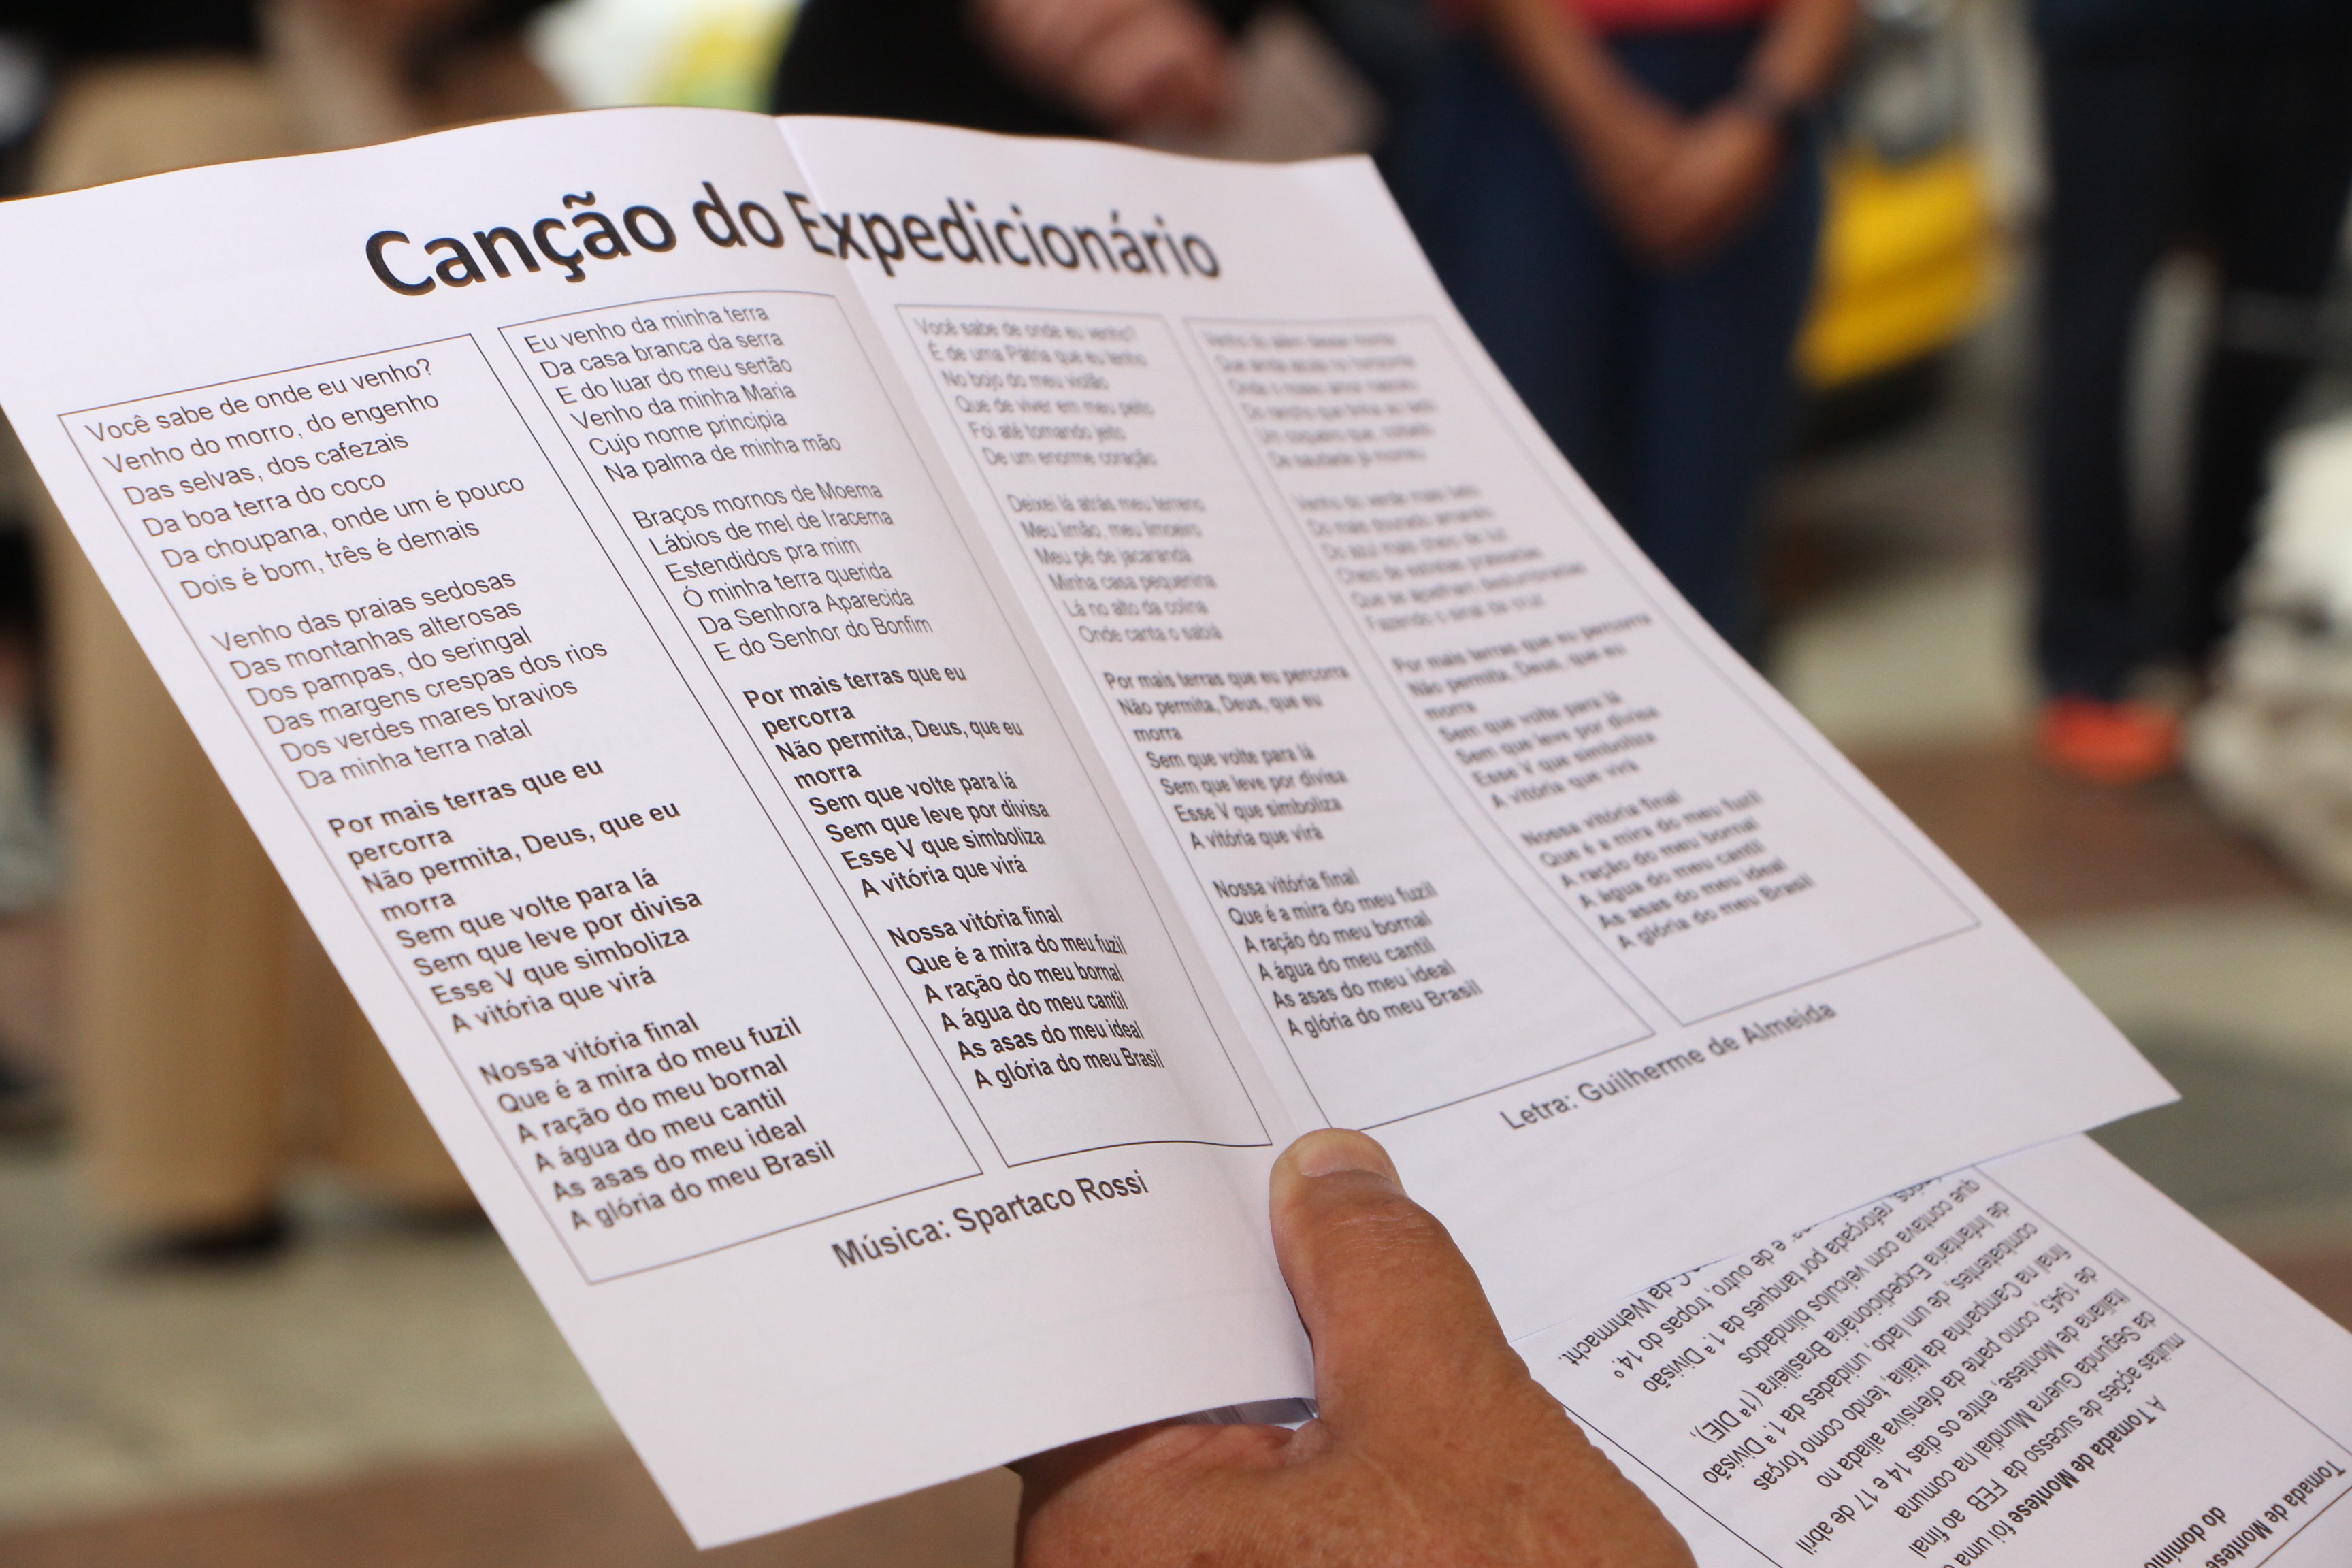 Canção do Expedicionário
Você sabe de onde eu venho?
Venho do morro, do engenho
Das selvas, dos cafezais
Da boa terra do coco
Da choupana, onde um é pouco
Dois é bom, três é demais
Venho das praias sedosas
Das montanhas alterosas
Dos pampas, do seringal
Das margens crespas dos rios
Dos verdes mares bravios
Da minha terra natal
Por mais terras que eu
percorra
Não permita, Deus, que eu
morra
Sem que volte para lá
Sem que leve por divisa
Esse V que simboliza
A vitória que virá
Nossa vitória final
Que é a mira do meu fuzil
A ração do meu bornal
A água do meu cantil
As asas do meu ideal
A glória do meu Brasil
Eu venho da minha terra
Da casa branca da serra
E do luar do meu sertão
Venho da minha Maria
Cujo nome principia
Na palma de minha mão
Braços mornos de Moema
Lábios de mel de Iracema
Estendidos pra mim
Ó minha terra querida
Da Senhora Aparecida
E do Senhor do Bonfim
Por mais terras que eu
percorra
Não permita, Deus, que eu
morra
Sem que volte para lá
Sem que leve por divisa
Esse V que simboliza
A vitória que virá
Nossa vitória final
Que é a mira do meu fuzil
A ração do meu bornal
A água do meu cantil
As asas do meu ideal
A glória do meu Brasil
Você sabe de onde eu venho?
É de uma Pátria que eu tenho
No bojo do meu violão
Que de viver em meu peito
Foi até tomando jeito
De um enorme coração
Deixei lá atrás meu terreno
Meu limão, meu limoeiro
Meu pé de jacarandá
Minha casa pequenina
Lá no alto da colina
Onde canta o sabiá
Por mais terras que eu percorra
Não permita, Deus, que eu
morra
Sem que volte para lá
Sem que leve por divisa
Esse V que simboliza
A vitória que virá
Nossa vitória final
Que é a mira do meu fuzil
A ração do meu bornal
A água do meu cantil
As asas do meu ideal
A glória do meu Brasil
Venho do além desse monte
Que ainda azula no horizonte
Onde o nosso amor nasceu
Do rancho que tinha ao lado
Um coqueiro que, coitado
De saudade já morreu
Venho do verde mais belo
Do mais dourado amarelo
Do azul mais cheio de luz
Cheio de estrelas prateadas
Que se ajoelham deslumbradas
Fazendo o sinal da cruz
Por mais terras que eu percorra
Não permita, Deus, que eu
morra
Sem que volte para lá
Sem que leve por divisa
Esse V que simboliza
A vitória que virá
Nossa vitória final
Que é a mira do meu fuzil
A ração do meu bornal
A água do meu cantil
As asas do meu ideal
A glória do meu Brasil
Música: Spartaco Rossi
Letra: Guilherme de Almeida
Tomada de Montese
do
A Tomada de Montese foi uma
muitas ações de sucesso da FEB ao final
da Segunda Guerra Mundial na comuna
italiana de Montese, entre os dias 14 e 17 de abril
de 1945, como parte da ofensiva aliada no
final na Campanha da Itália, tendo como forças
combatentes, de um lado, unidades da 1.ª Divisão
de Infantaria Expedicionária Brasileira (1ª DIE),
que contava com veículos blindados
reforçada por tanques da 1.ª Divisão
e de outro, tropas do 14.º
C da Wehrmacht.